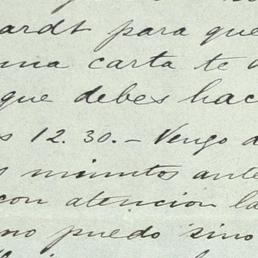 ardt para que
una carta te
que debes hac
s 12.30.- Vengo d
s minutos ante
con atencion la
no puedo sino